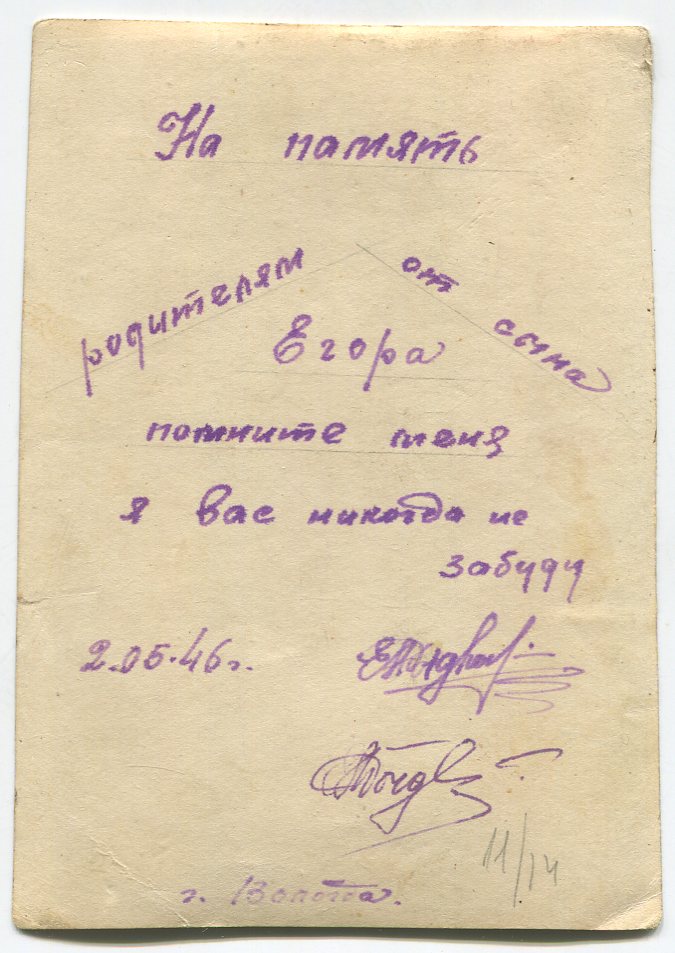 На память
родителям от сына
Егора
помните меня
я вас никогда не
забуду
2.05.46 г.
11/14
г. Вологда.